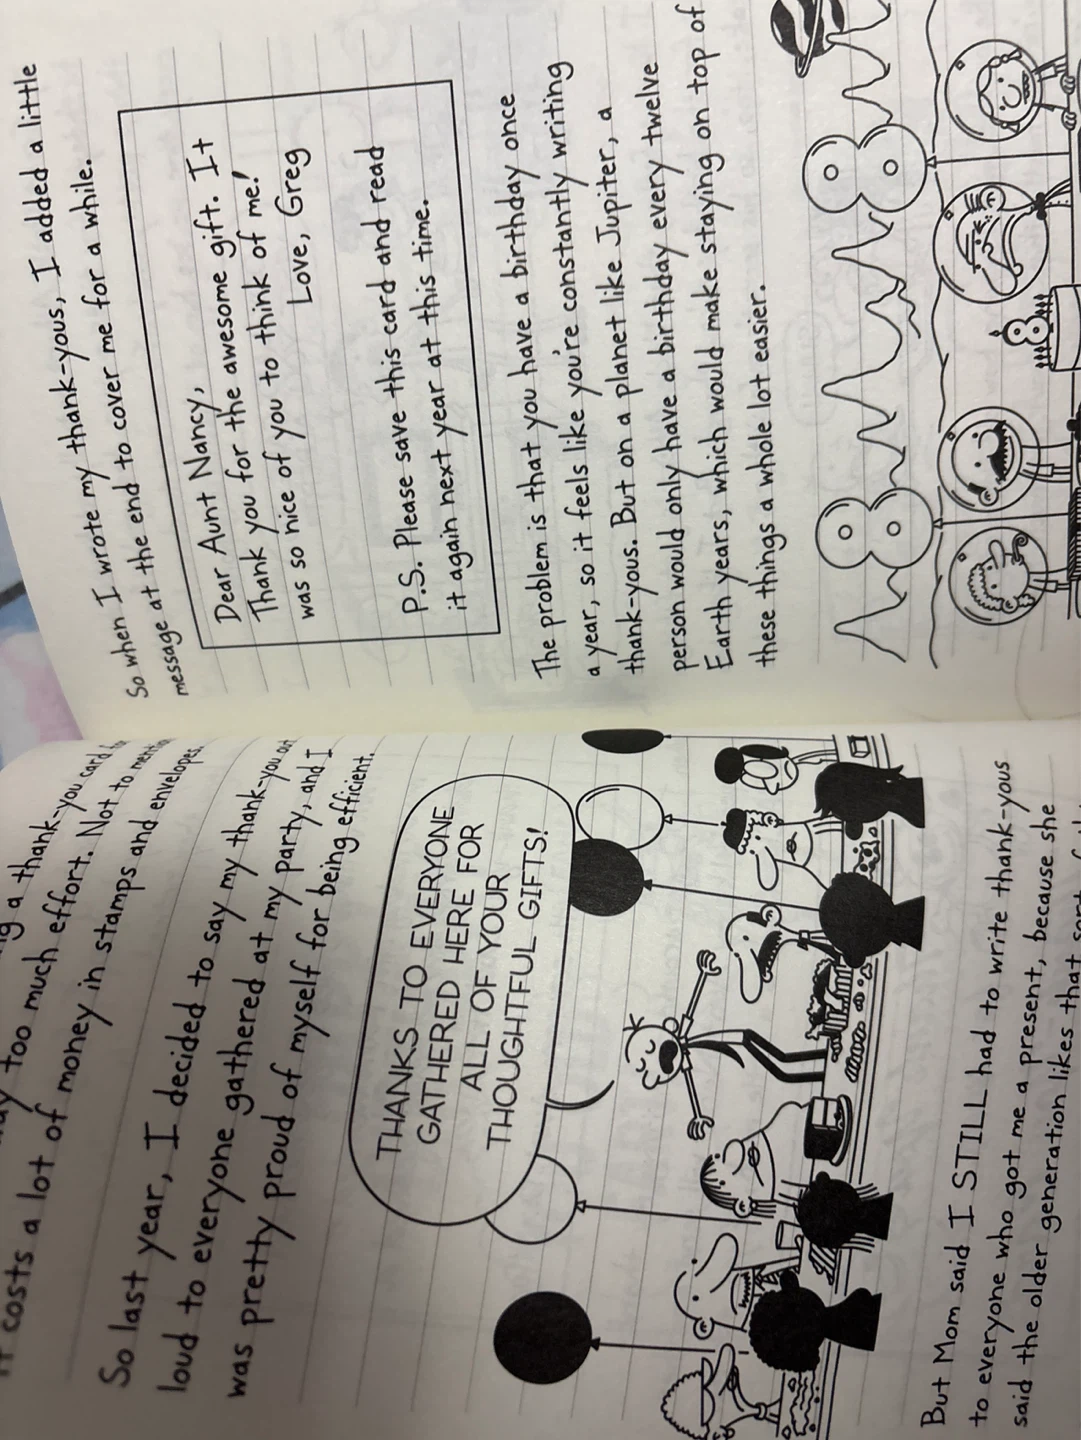 a thank-you card
too much effort. Not to mention
it costs a lot of money in stamps and envelopes.
So last year, I decided to say my thank-you out
loud to everyone gathered at my party, and I
was pretty proud of myself for being efficient.
THANKS TO EVERYONE
GATHERED HERE FOR
ALL OF YOUR
THOUGHTFUL GIFTS!
But Mom said I STILL had to write thank-yous
to everyone who got me a present, because she
said the older generation likes that sort of
So when I wrote my thank-yous, I added a little
message at the end to cover me for a while.
Dear Aunt Nancy,
Thank you for the awesome gift. It
was so nice of you to think of me!
Love, Greg
P.S. Please save this card and read
it again next year at this time.
The problem is that you have a birthday once
a year, so it feels like you're constantly writing
thank-yous. But on a planet like Jupiter, a
person would only have a birthday every twelve
Earth years, which would make staying on top of
these things a whole lot easier.
8 8
8